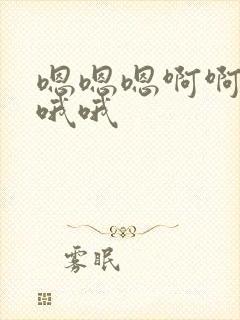 嗯嗯嗯啊啊
哦哦
雾眠